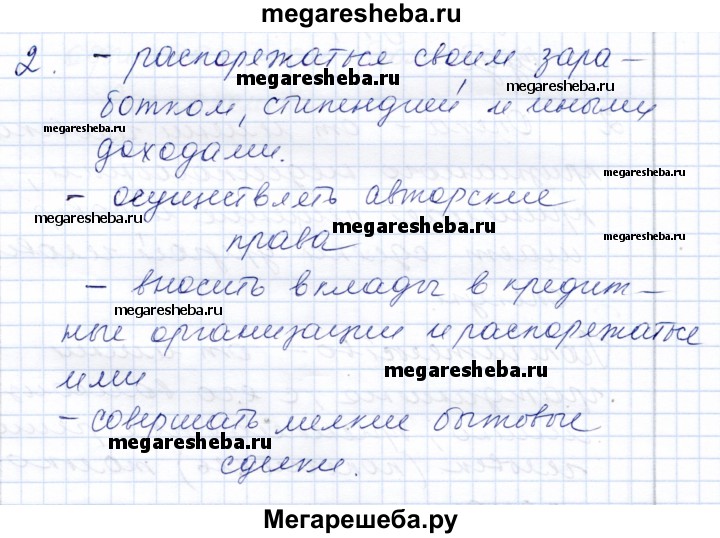 megaresheba.ru
2. - распоряжаться своим зара-
megaresheba.ru
megaresheba.ru
ботком, стипендией и иными
megaresheba.ru
доходами.
megaresheba.ru
- осуществлять авторские
megaresheba.ru
megaresheba.ru
права
megaresheba.ru
- вносить вклады в кредит-
megaresheba.ru
ные организации и распоряжаться
ими
megaresheba.ru
- совершать мелкие бытовые
megaresheba.ru
сделки.
Мегарешеба.ру